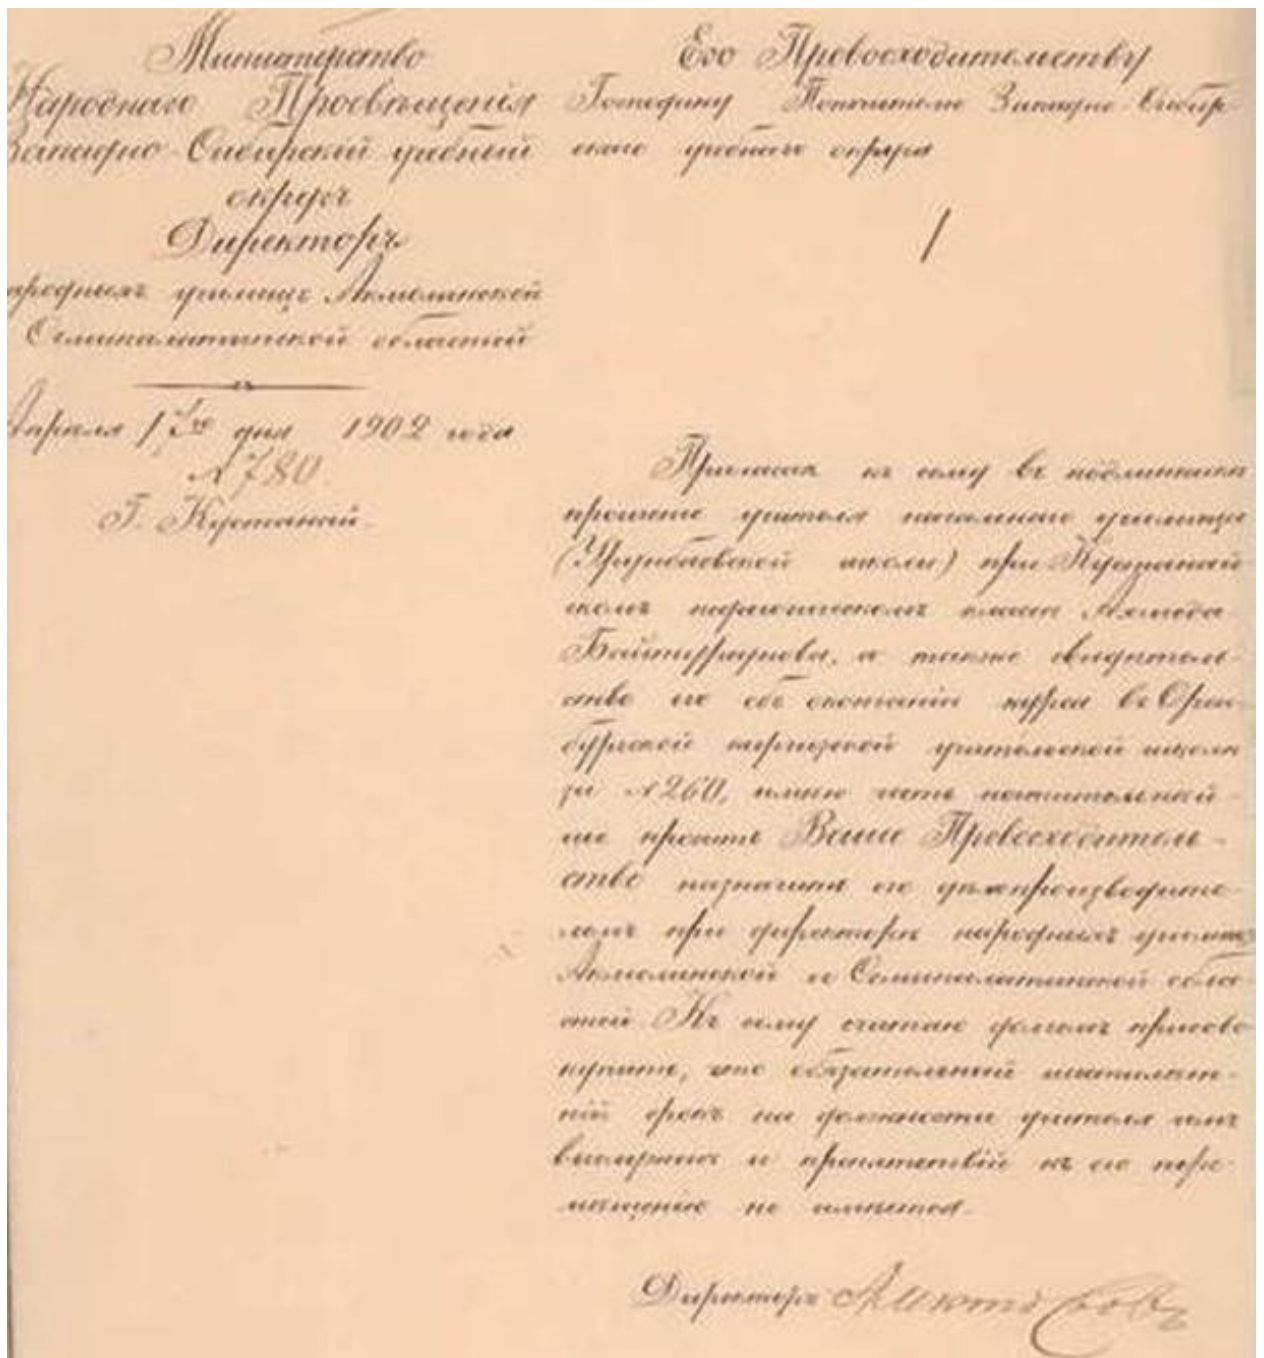 Министерство
Народнаго Просвѣщенія
Западно-Сибирскій учебный
округъ
Директоръ
народныхъ училищъ Акмолинской
Семипалатинской областей
Апреля 1 дня 1902 года
№ 780
Г. Кустанай.
Его Превосходительству
Господину Попечителю Западно-Сибир-
скаго учебнаго округа
Прилагая къ сему въ подлинникѣ
прошеніе учителя начальнаго училища
школы) при Кустанай
скомъ педагогическомъ классѣ Ахмеда
Байтурсунова, а также свидѣтель-
ство его объ окончаніи курса въ Орен-
бургской киргизской учительской школѣ
за №260, имѣю честь почтительнѣй-
ше просить Ваше Превосходитель-
ство назначить его дѣлопроизводите-
лемъ при директорѣ народныхъ училищъ
Акмолинской и Семипалатинской обла-
стей. Къ сему считаю долгомъ присово-
купить, что обязательный шестилѣт-
ній срокъ на должности учителя имъ
выслуженъ и препятствій къ его пере-
мѣщенію не имѣется.
Директоръ Алекторовъ